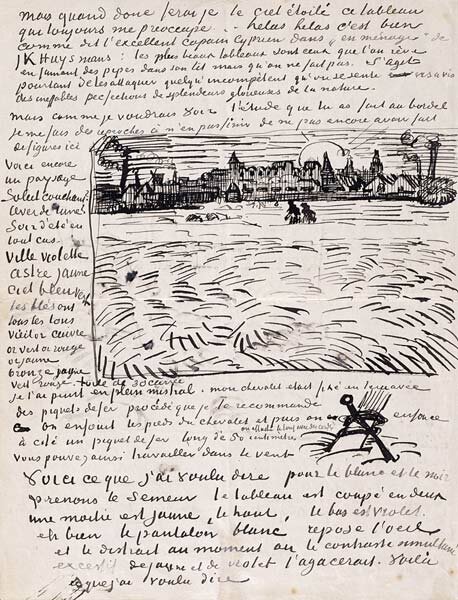 mais quand donc ferai je le Ciel étoilé ce tableau
qui toujours me préoccupe – helas helas c'est bien
comme dit l'excellent copain Cyprien dans "en ménage" de
J K Huysmans: les plus beaux tableaux sont ceux que l'on rêve
en fumant des pipes dans son lit mais qu'on ne fait pas. S'agit
pourtant de les attaquer quelqu'incompétent qu'on se sente vis à vis
des ineffables perfections de splendeurs glorieuses de la nature.
Mais comme je voudrais voir l'étude que tu as fait au bordel
je me fais des reproches à n'en pas finir de ne pas encore avoir fait
de figures ici
Voici encore
un paysage
Soleil couchant?
lever de lune?
Soir d'été en
tout cas.
Ville violette
astre jaune
ciel bleu vert
les blés ont
tous les tons
vieil or cuivre
or vert or rouge
or jaune
bronze jaune
vert rouge. toile de 30 carrée
je l'ai peint en plein mistral. mon chevalet était fixé en terre avec
des piquets de fer procédé que je te recommande
on enfonce les pieds du chevalet et puis on enfonce
à côté un piquet de fer long de 50 centimètres
on attache le tout avec des cordes
vous pouvez ainsi travailler dans le vent
Voici ce que j'ai voulu dire pour le blanc et le noir
prenons le Semeur le tableau est coupé en deux
une moitié est jaune, le haut, le bas est violet.
eh bien le pantalon blanc repose l'oeil
et le distrait au moment où le contraste simultané
excessif de jaune et de violet l'agacerait. Voilà
ce que j'ai voulu dire